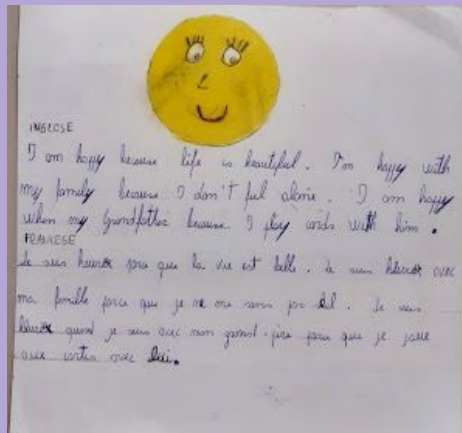 INGLESE
I am happy because life is beautiful. I'm happy with
my family because I don't feel alone. I am happy
when my Grandfather because I play cards with him.
FRANCESE
Je suis heurox parce que la vie est belle. Je suis heurox avec
ma famille parce que je ne me sens pas
Je suis
heurox quand je suis avec mon grand-père parce que je joue
aux cartes avec lui.